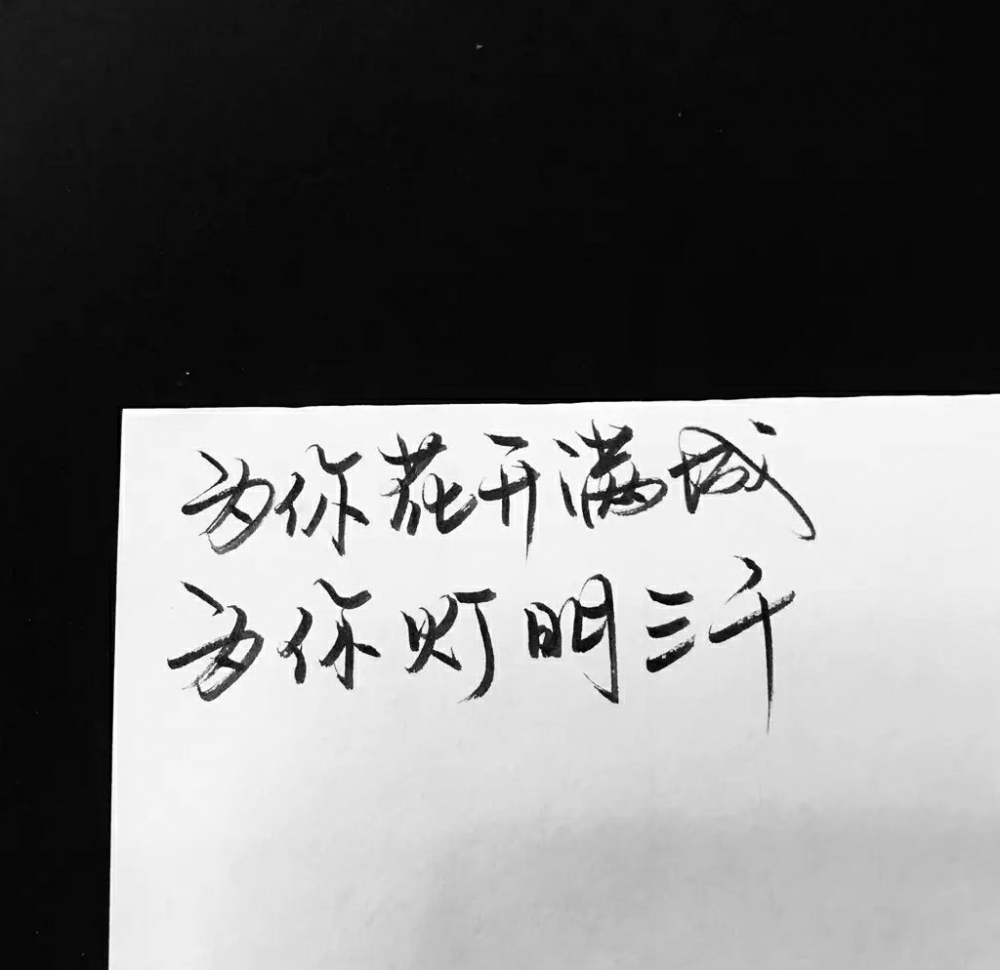 为你花开满城
为你灯明三千